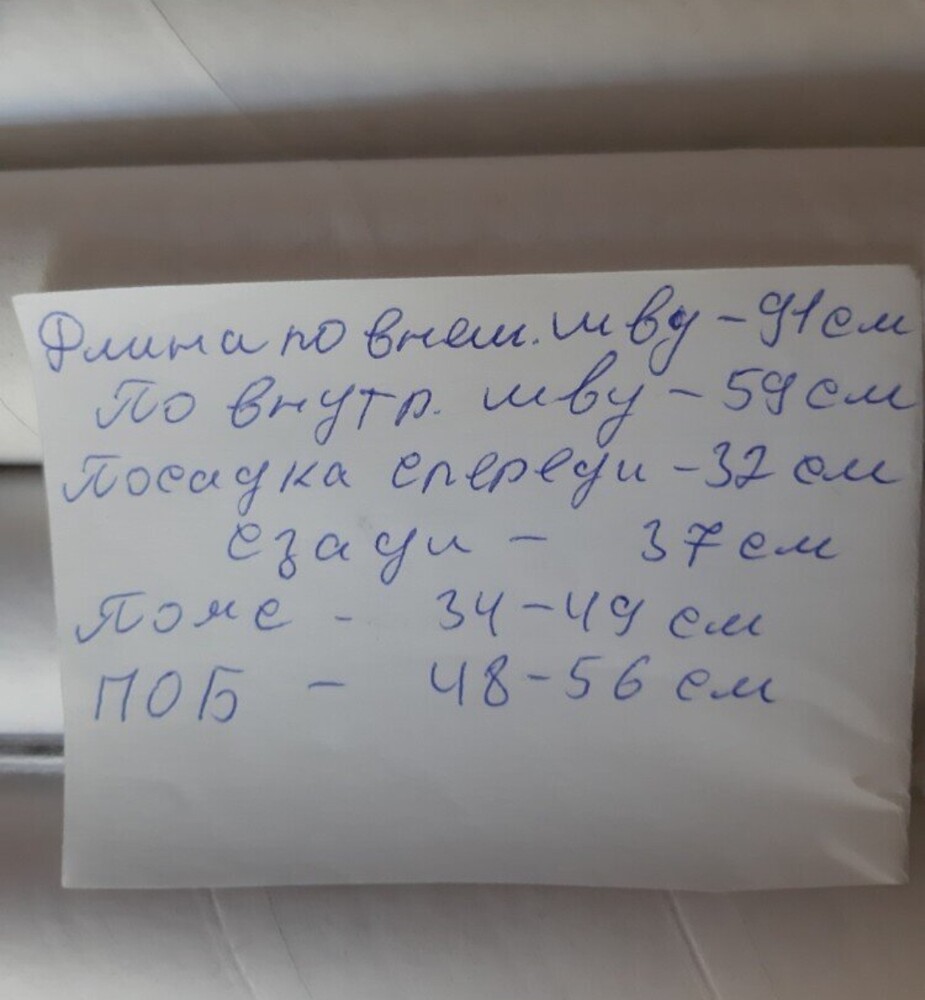 Длина по внеш. шву - 91 см
По внутр. шву - 59 см
Посадка спереди - 32 см
сзади - 37 см
Пояс - 34-49 см
ПОБ - 48-56 см